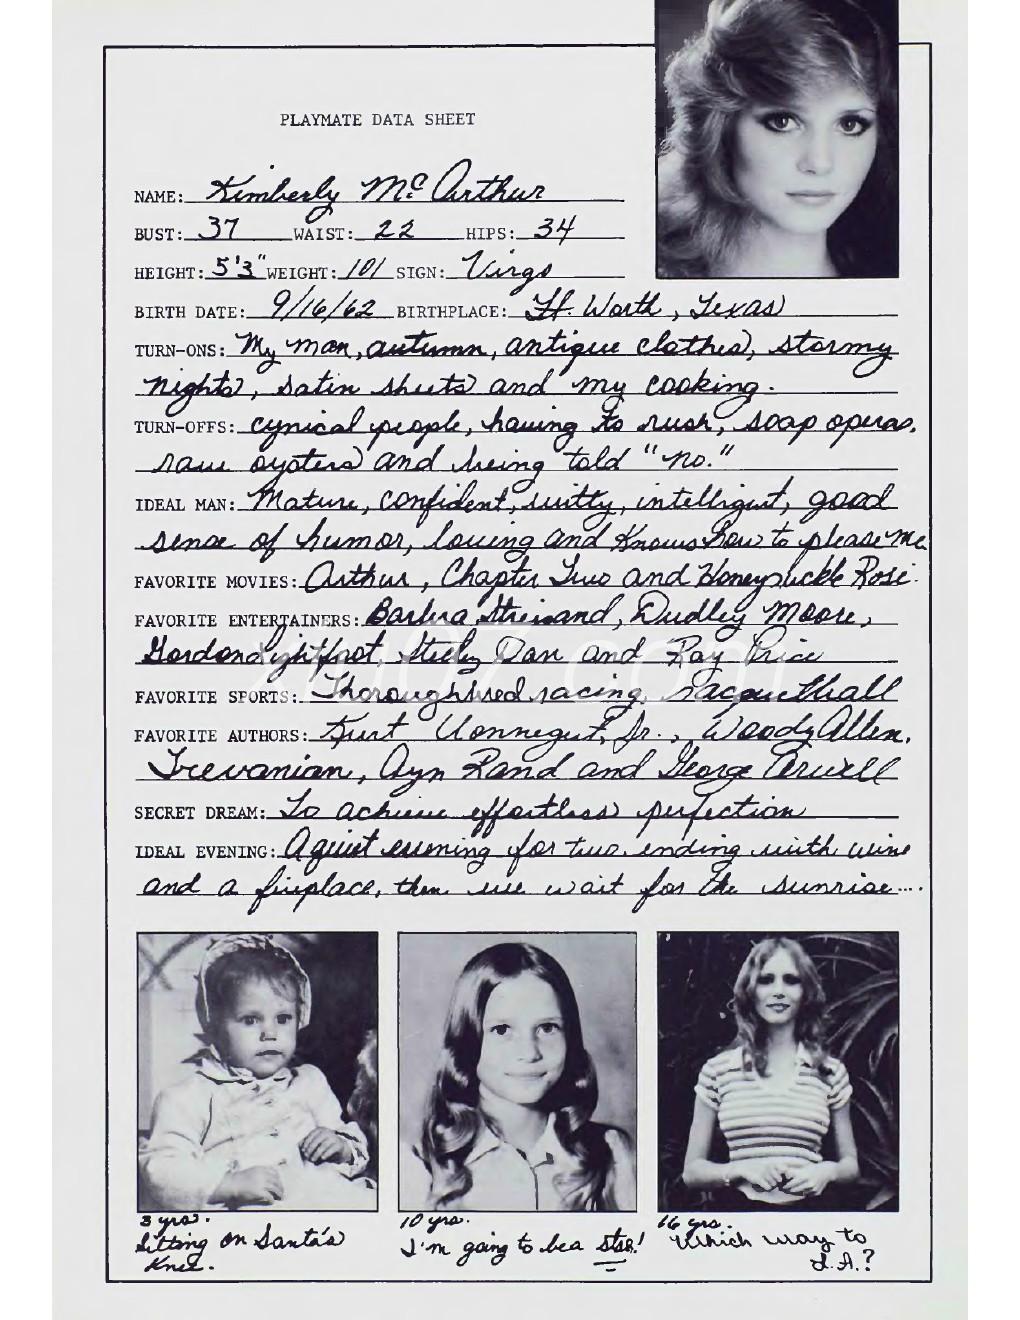 PLAYMATE DATA SHEET
NAME: Kimberly McArthur
BUST: 37 WAIST: 22 HIPS: 34
HEIGHT: 5'3" WEIGHT: 101 SIGN: Virgo
BIRTH DATE: 9/16/62 BIRTHPLACE: Ft. Worth, Texas
TURN-ONS: My man, autumn, antique clothes, stormy
nights, satin sheets and my cooking.
TURN-OFFS: cynical people, having to rush, soap operas,
raw oysters and being told "no."
IDEAL MAN: Mature, confident, witty, intelligent, good
sense of humor, loving and knows how to please me
FAVORITE MOVIES: Arthur, Chapter Two and Honeysuckle Rose.
FAVORITE ENTERTAINERS: Barbra Streisand, Dudley Moore,
Gordon Lightfoot, Steely Dan and Ray Price
FAVORITE SPORTS: Thoroughbred racing, racquetball
FAVORITE AUTHORS: Kurt Vonnegut, Jr., Woody Allen,
Trevanian, Ayn Rand and George Orwell
SECRET DREAM: To achieve effortless perfection
IDEAL EVENING: A quiet evening for two, ending with wine
and a fireplace, then we wait for the sunrise....
3 yrs.
Sitting on Santa's
Knee.
10 yrs.
I'm going to be a star!
16 yrs.
Which way to
L.A.?